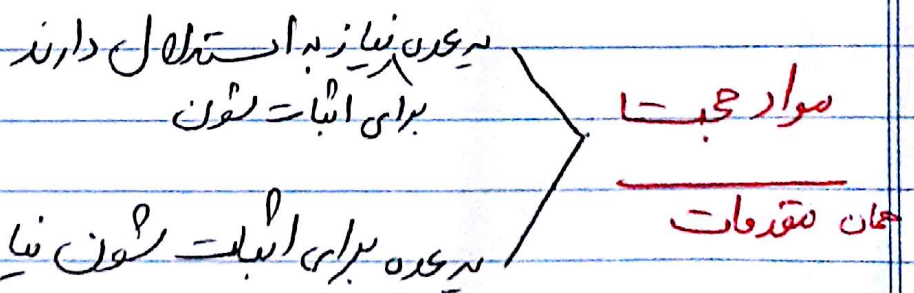 مواد حجت
همان مقدمات
یه عده نیاز به استدلال دارند
برای اثبات شون
یه عده برای اثبات شون نیا